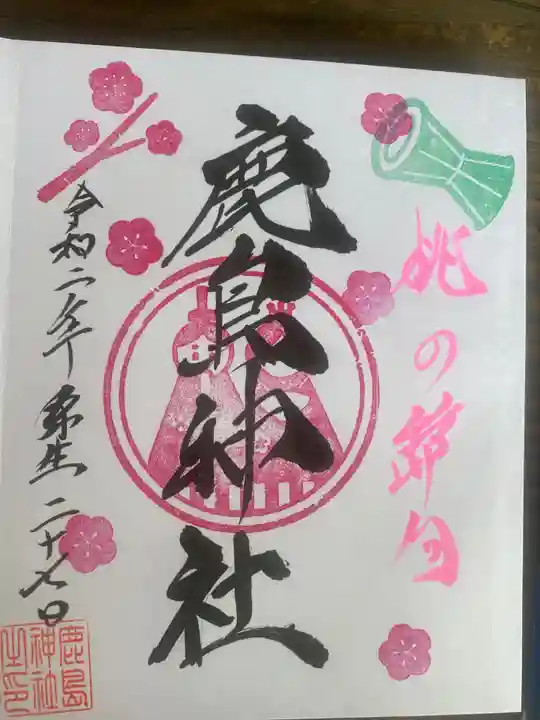 桃の節句
鹿島神社
令和二年弥生二十七日
鹿島
神社
之印